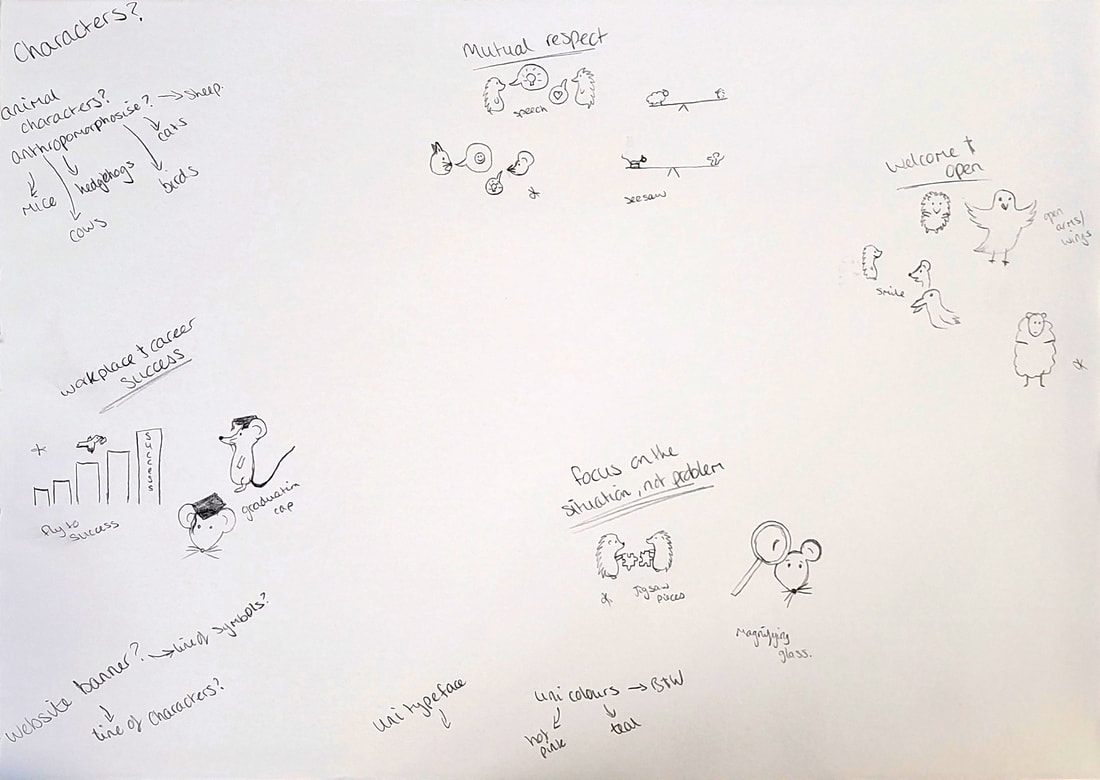 Characters?
animal
characters?
anthropomorphosise? → sheep.
cats
birds
hedgehogs
Mice
cows
Mutual respect
speech
seesaw
Welcome +
open
open
arms/
wings
smile
workplace + career
success
success
fly to
success
graduation
cap
focus on the
situation, not problem
Jigsaw
pieces
Magnifying
glass.
website banner? → line of symbols?
line of characters?
uni typeface
uni colours → B+W
hot
pink
teal